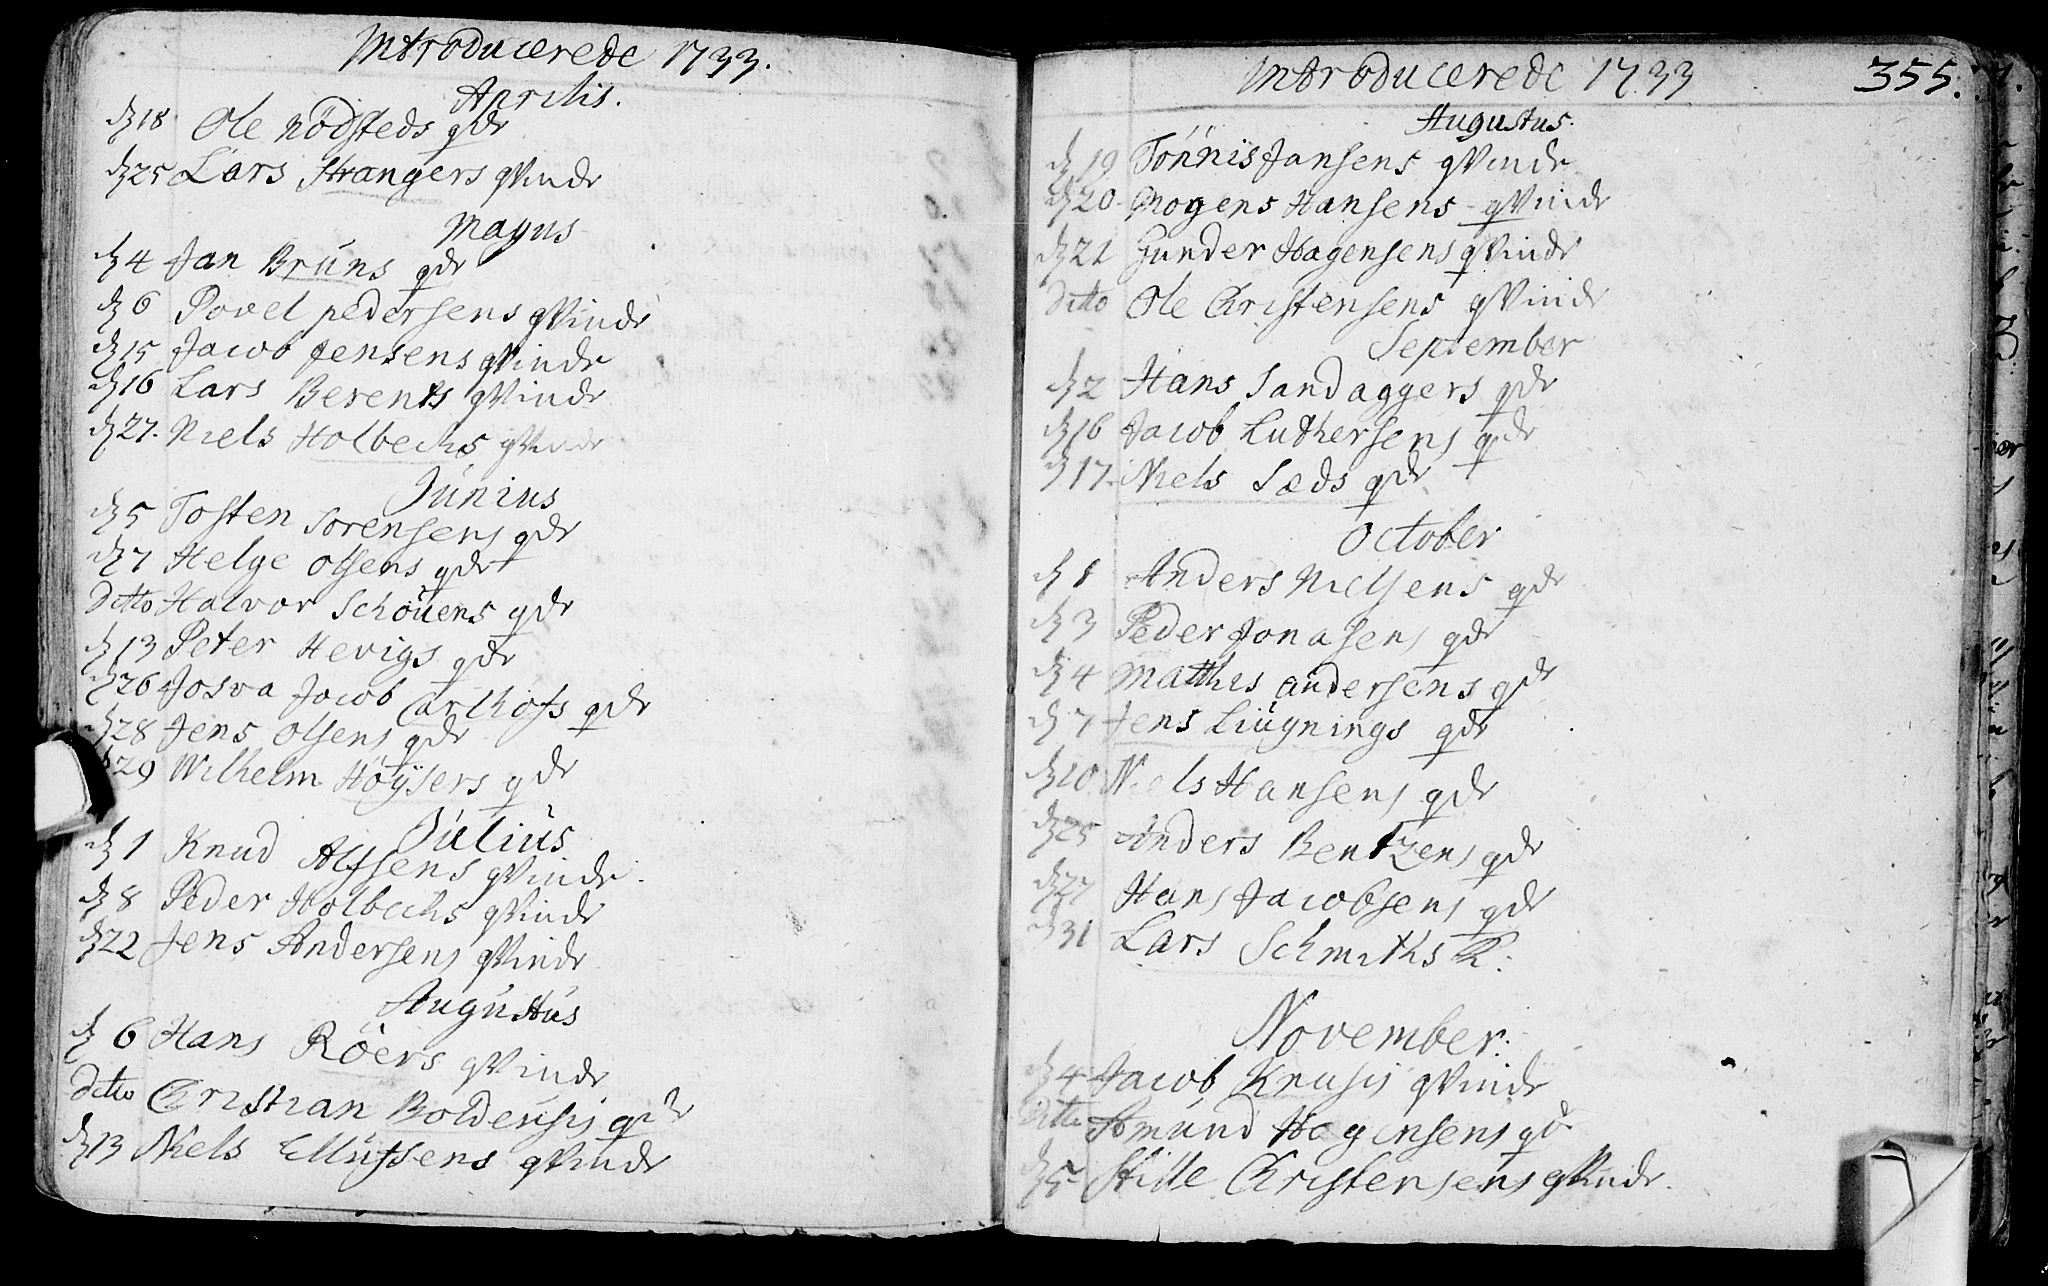 Introducerede 1733.
Aprilis.
d 18 Ole nödsteds qde
d 25 Lars Strangers qVinde
Mayus
d 4 Jan Bruns qde
d 6 Povel pedersens qVinde
d 15 Jacob Jensens qVinde
d 16 Lars Berents qVinde
d 27. Niels Holbechs qVinde
Junius
d 5 Tosten Sorensens qde
d 7 Helge Olsens qde
ditto Halvor Schouens qde
d 13 Peter Hevigs qde
d 26 Josva Jacob Carlhofs qde
d 28 Jens Olsens qde
d 29 Wilhelm Höysers qde
Julius
d 1 Knud Alfsens qVinde.
d 8 Peder Holbechs qVinde
d 22 Jens Andersens qVinde
Augustus
d 6 Hans Röers qVinde
ditto Christian Boldevsis qde
d 13 Niels Ellufsens qVinde
Introducerede 1733 355.
Augustus.
d 19 Tönnis Jansens qVinde
d 20 Mogens Hansens qVinde
d 21 Gunder Hagensens qVinde
ditto Ole Christensens qVinde
September
d 2 Hans Sandaggers qde
d 16 Jacob Luthersens qde
d 17. Niels Sæds qde
October
d 1 Anders Nielsens qde
d 3 Peder Jonasens qde
d 4 Matthis andersens qde
d 7 Jens Liugnings qde
d 10 Niels Hansens qde
d 25 Anders Bentzens qde
d 27 Hans Jacobsens qde
d 31 Lars Schmiths K:
November:
d 4 Jacob Krusis qVinde
Ditto Amund Hagensens qde
d 5 Stille Christensens qVinde.